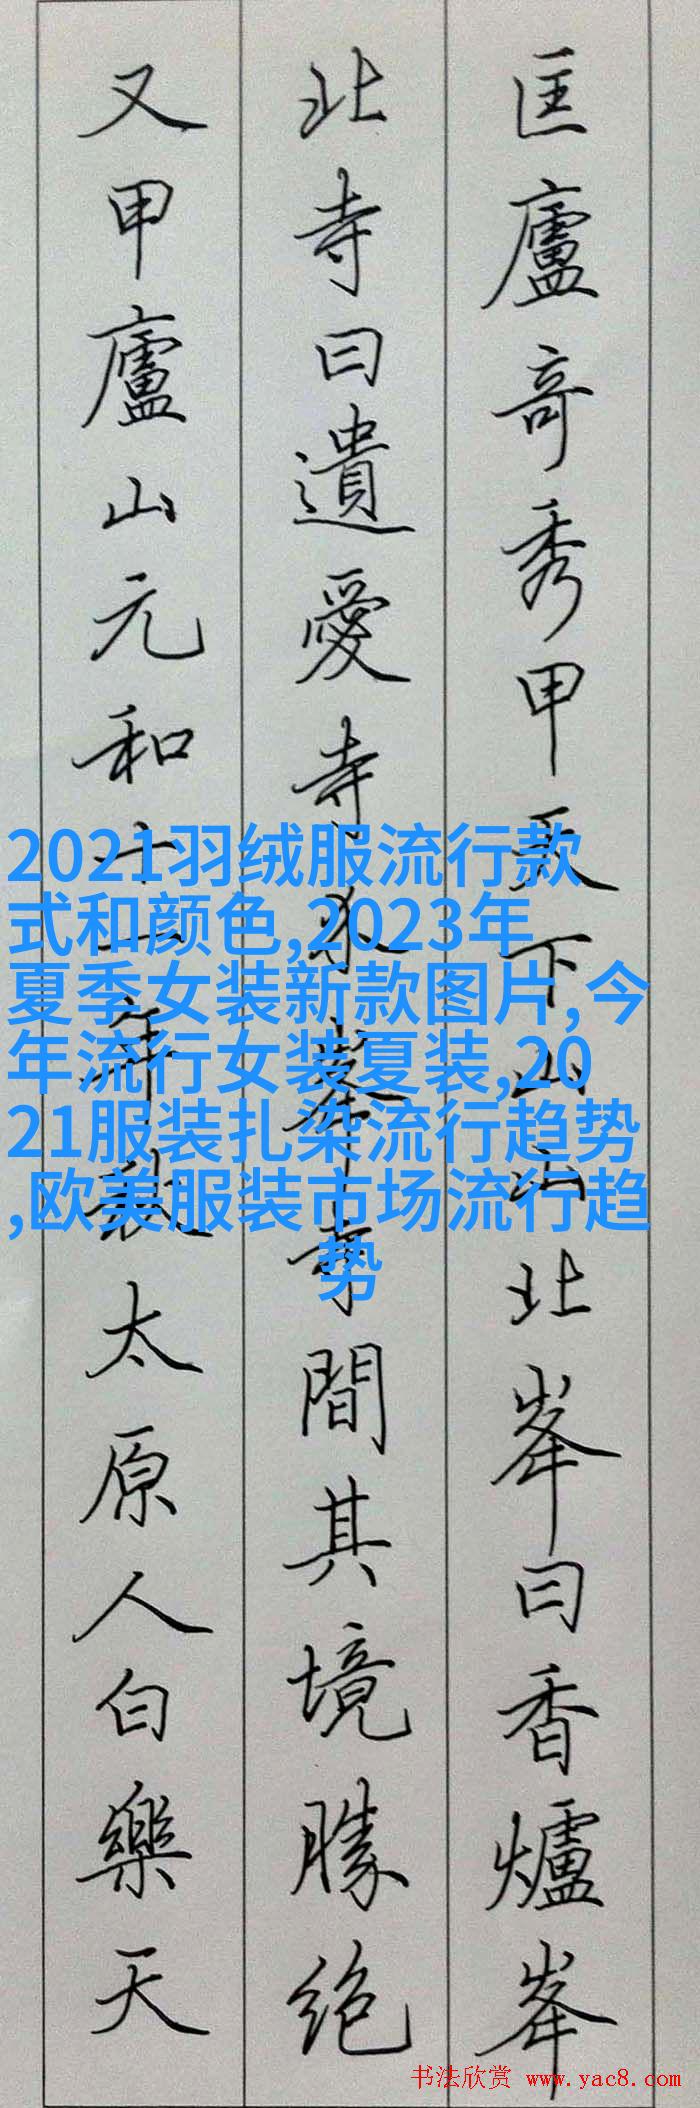 匡廬奇秀甲天下山山北峯曰香爐峯
北寺曰遺愛寺介峯寺間其境勝絶
又甲廬山元和十一年秋太原人白樂天
2021羽绒服流行款
式和颜色,2023年
夏季女装新款图片,今
年流行女装夏装,20
21服装扎染流行趋势
,欧美服装市场流行趋
势
书法欣赏 www.yac8.com